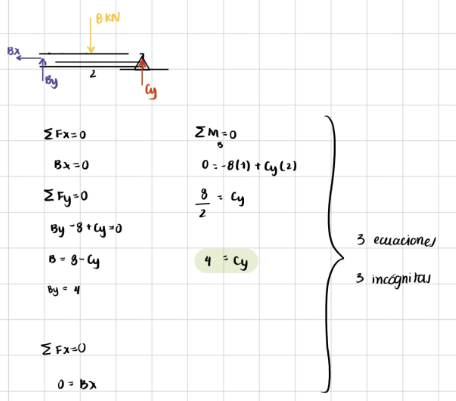 8 KN
Bx
By
2
Cy
ΣFx=0
Bx=0
ΣFy=0
By -8 + Cy=0
B = 8-Cy
By = 4
ΣFx=0
0 = Bx
ΣM=0
B
0 = -8(1) + Cy(2)
8/2 = Cy
4 = Cy
3 ecuaciones
3 incógnitas